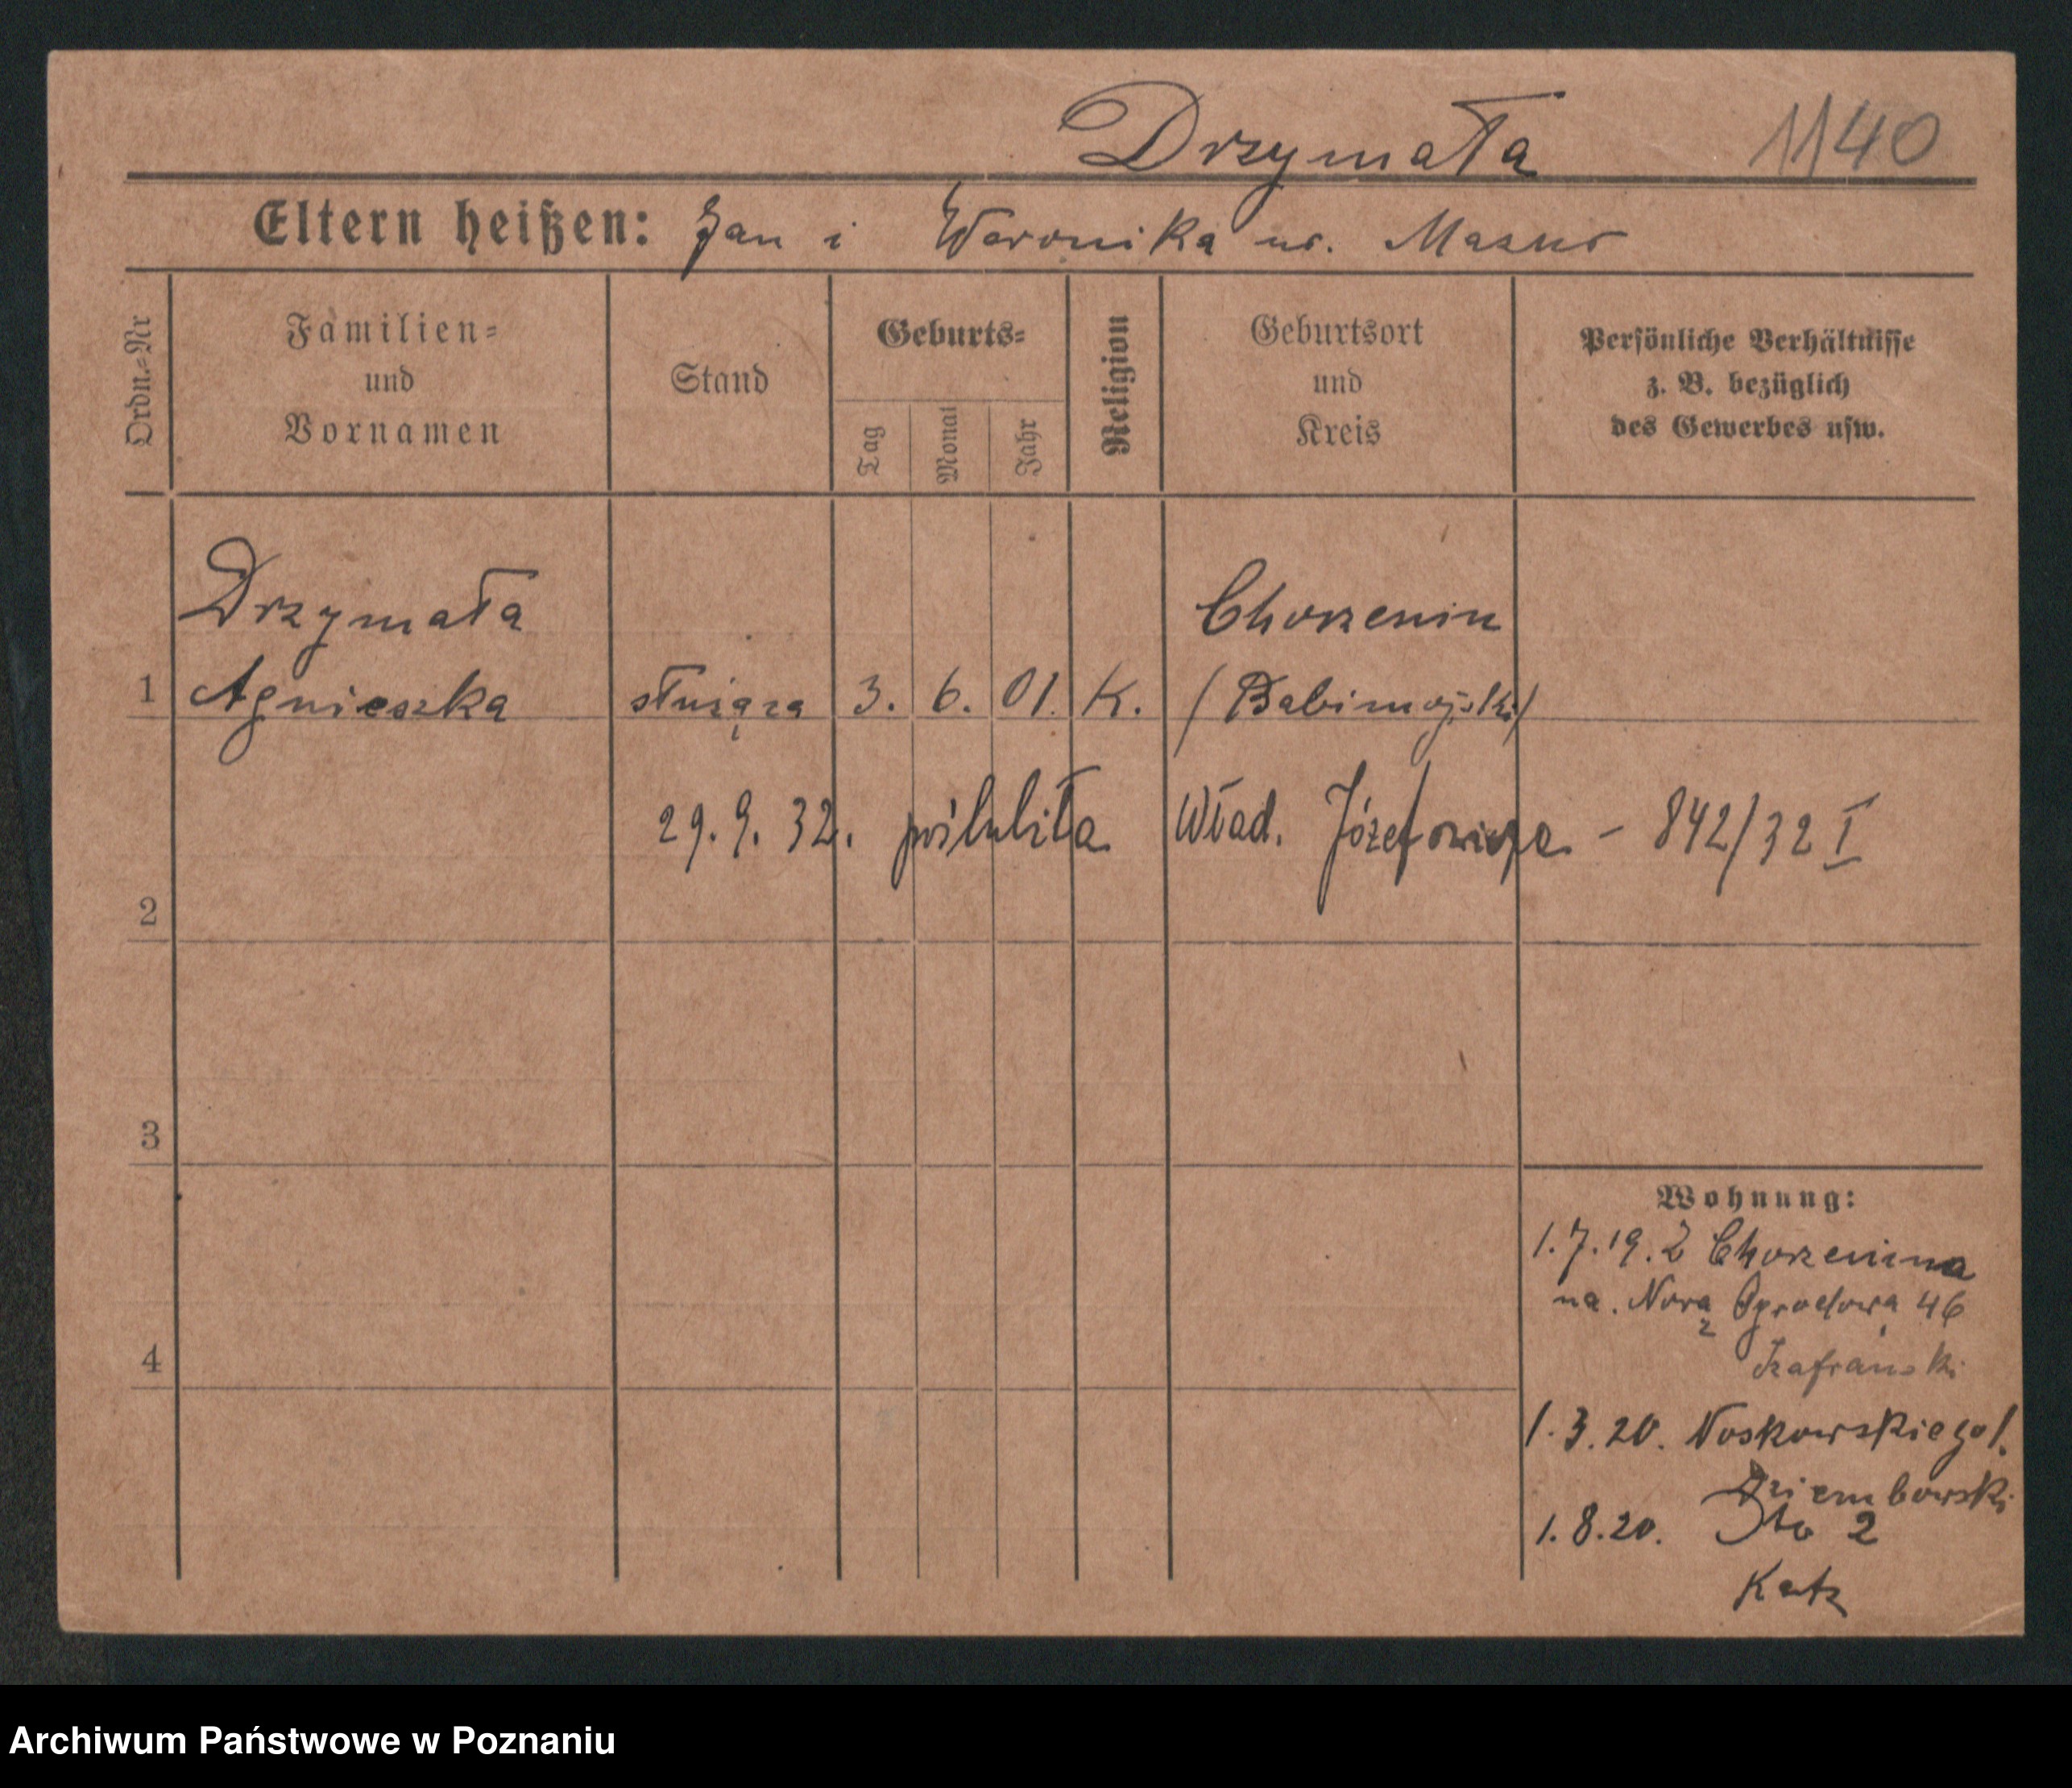 Drzymała 1140
Eltern heißen: Jan i Weronika ur. Mazur
Ordn.=Nr
Familien=
und
Vornamen
Stand
Geburts=
Tag
Monat
Jahr
Religion
Geburtsort
und
Kreis
Persönliche Verhältnisse
z. B. bezüglich
des Gewerbes usw.
Drzymała Chorzenin
1 Agnieszka służąca 3. 6. 01. K. (Babimojski)
29. 9. 32. poślubiła Wład. Józefowicza - 842/32 I
2
3
4
Wohnung:
1.7.19. Z Chorzenina
na. Ogrodową 46
Szafrański
1.3.20. Noskowskiego 1.
Dziembowski
1.8.20. 2
Katz
Archiwum Państwowe w Poznaniu